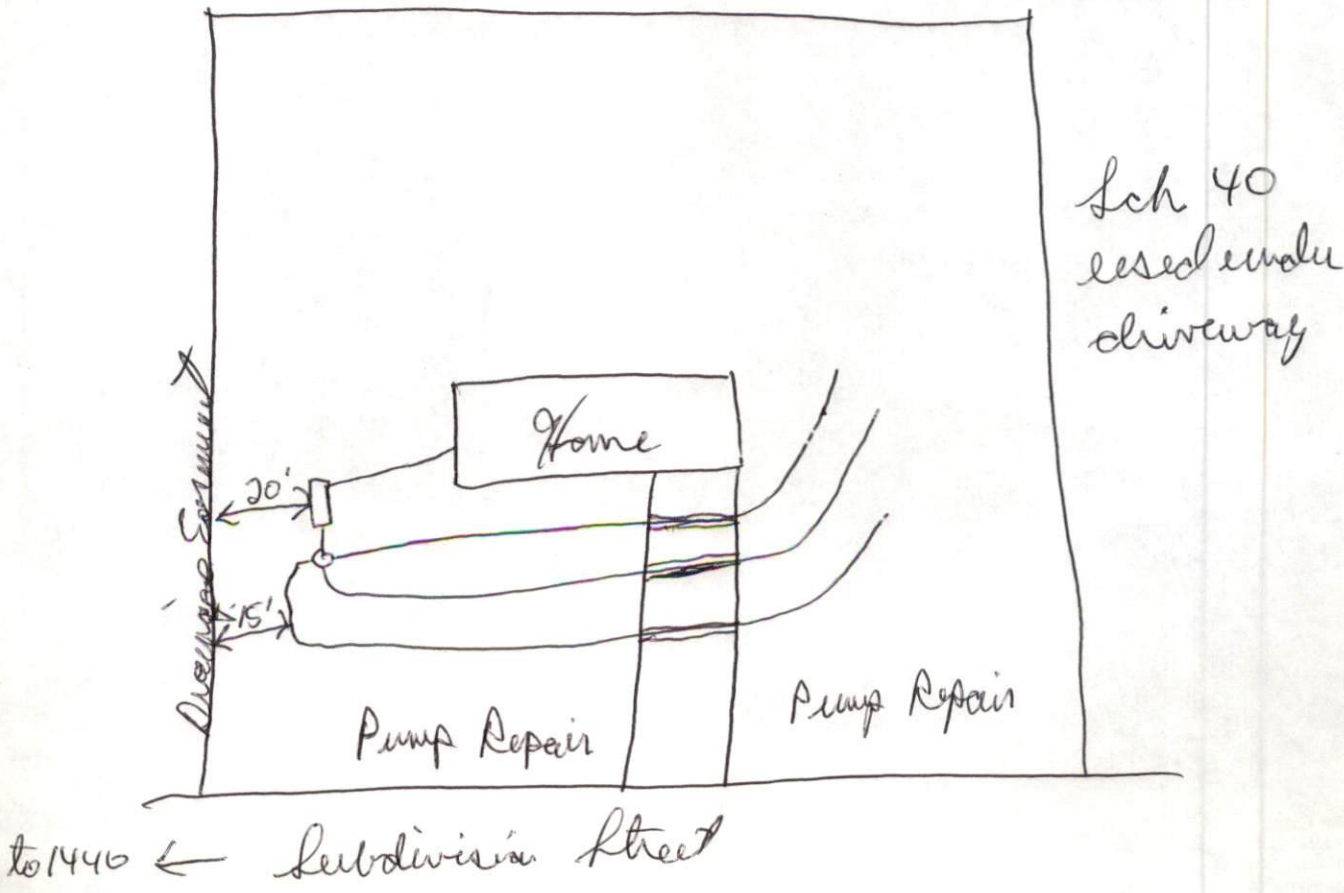 Sch 40
used under
driveway
Home
20'
Drainage Easement
15'
Pump Repair
Pump Repair
to 1440 ← Subdivision Street